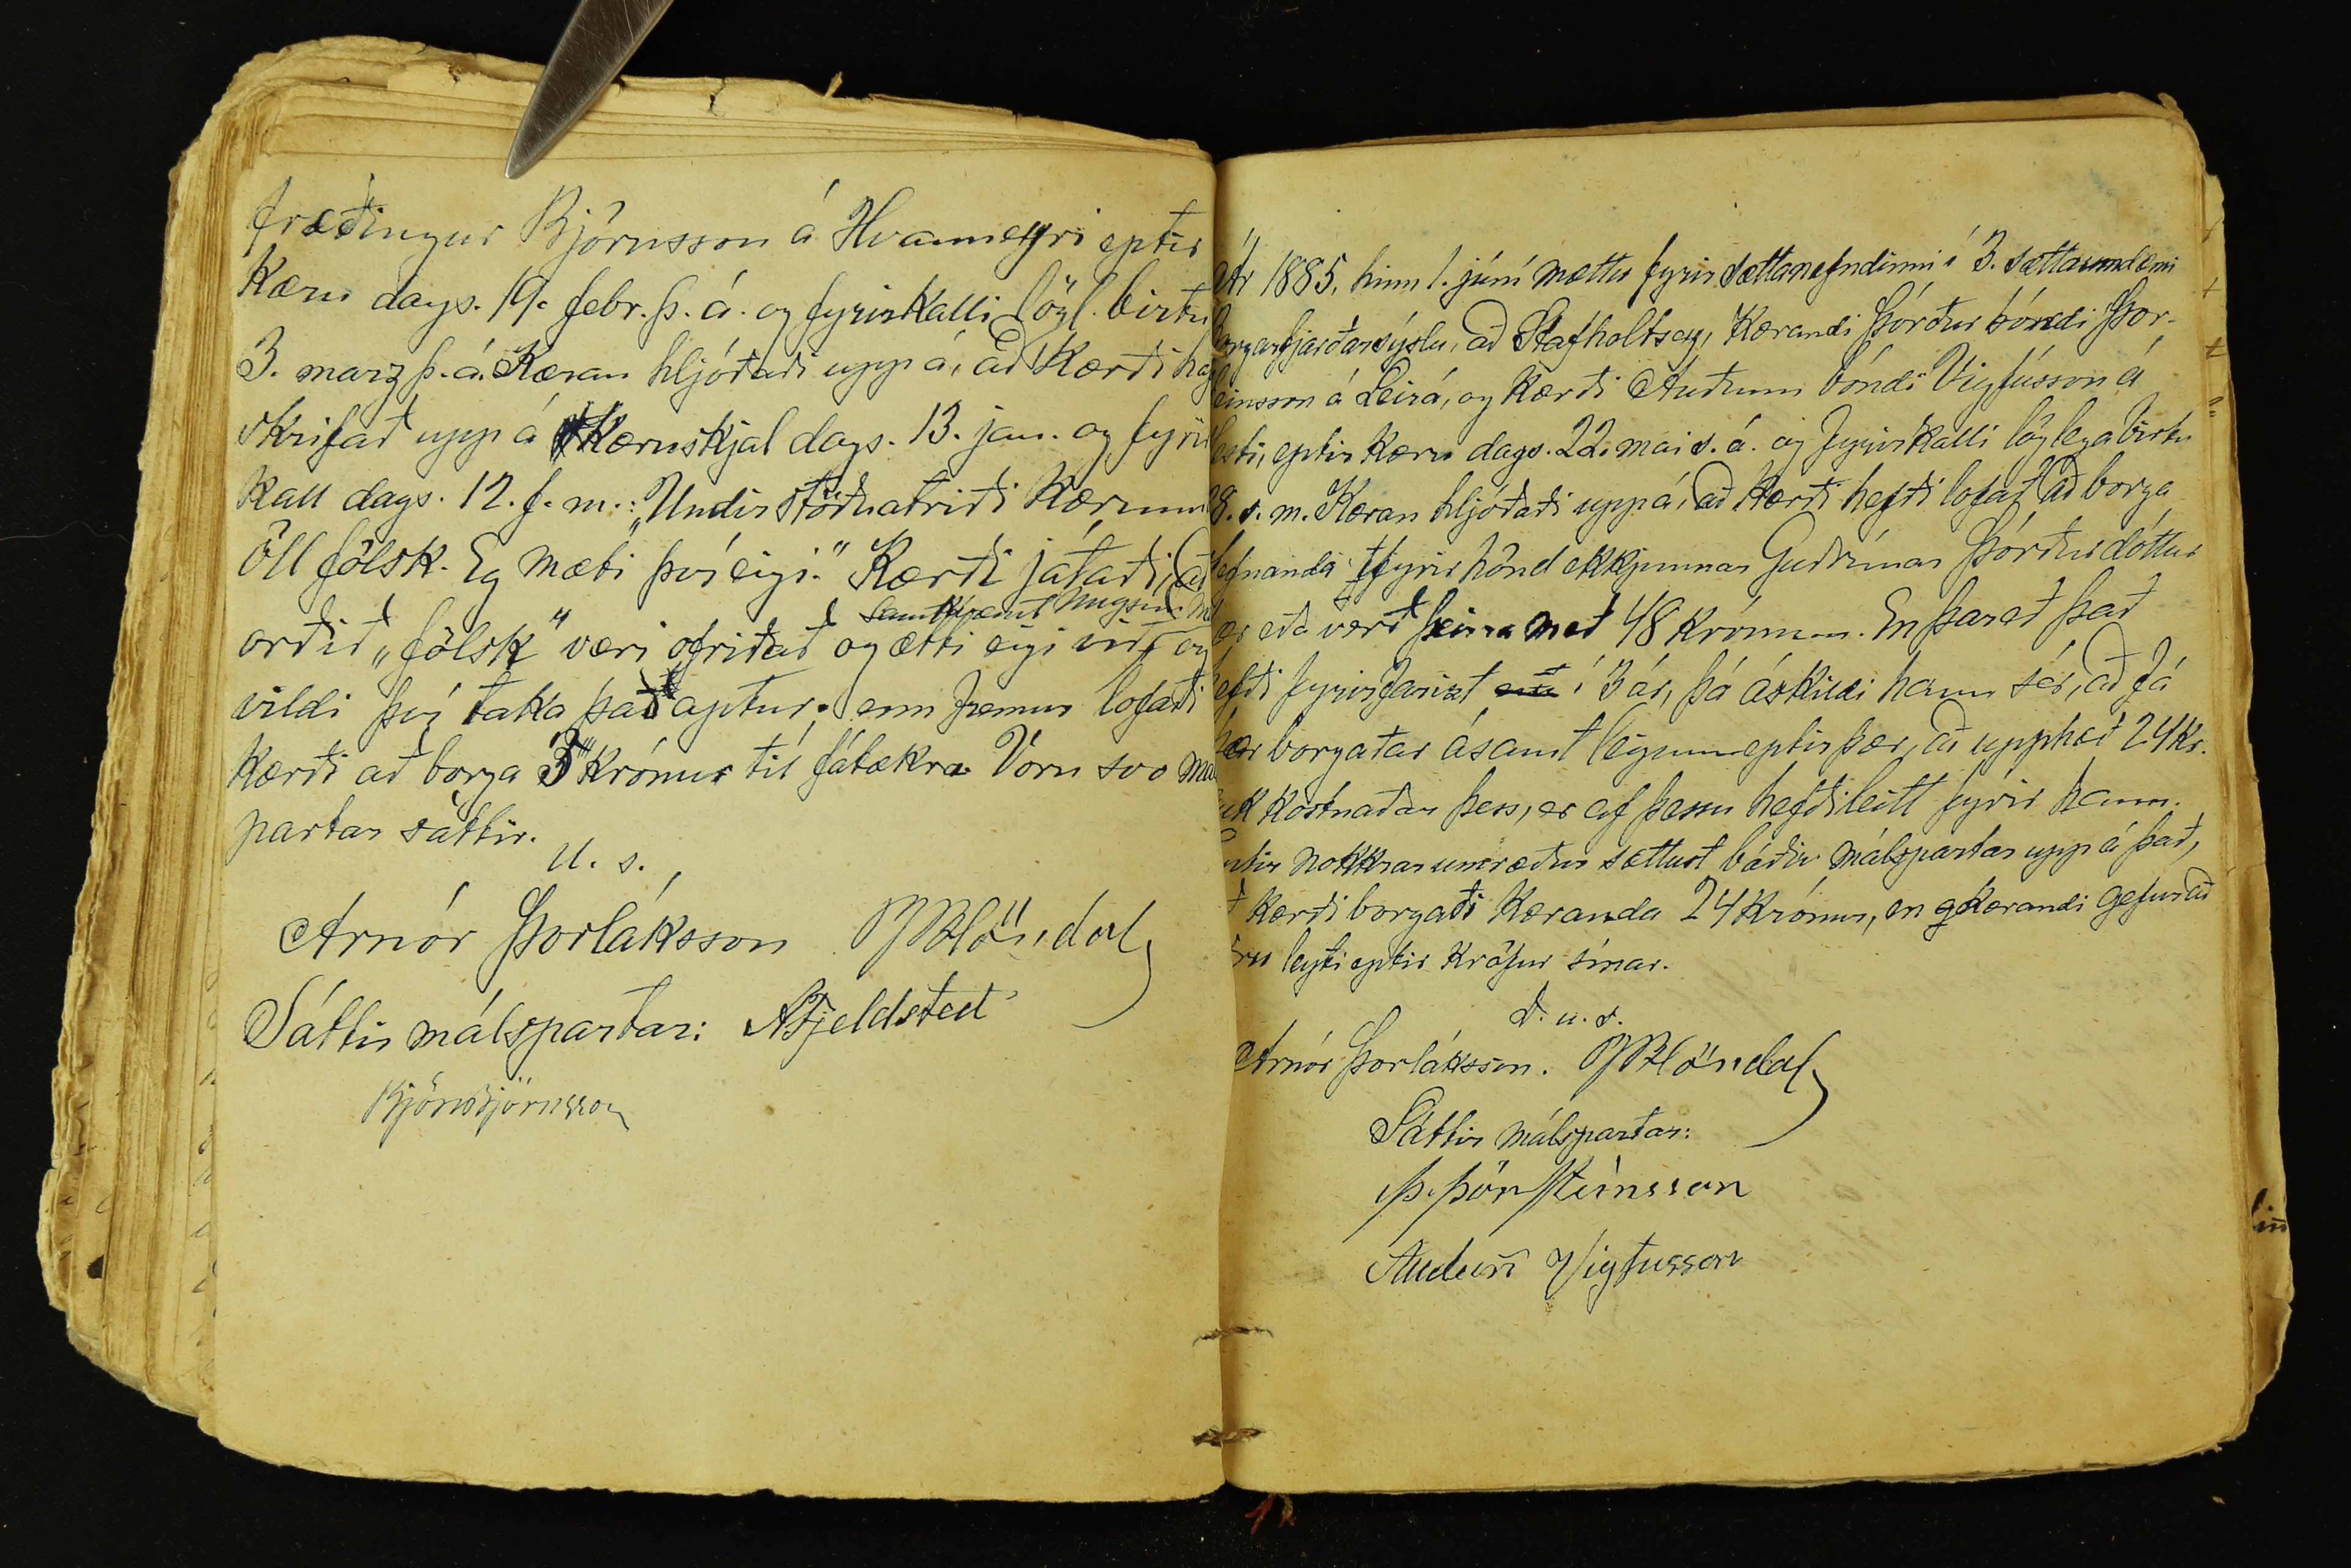 fræðingur Björnsson á Hvanneyri eptir
Kæru dags. 19. febr. þ. á. og fyrirkalli lögl. birtu
3. marz þ. á. Kæran hljóðaði upp á, að Kærði ha
skrifað upp á Kæruskjal dags. 13. jan. og fyrir
Kall dags. 12. f. m.: „Undirstöðuatriði Kærunn
öll fölsk. Eg mæti því eigi." Kærði játaði, að
samkvæmt
orðið „fölsk" væri ofritað og ætti eigi við, og
vildi því taka það aptur. enn fremur lofaði
Kærði að borga 3 Krónur til fátækra. Vóru svo má
partar sáttir.
u. s.
Arnór Þorláksson BBlöndal
Sáttir málspartar: AFjeldsted
Björn Björnsson
Ár 1885, hinn 1. júní mættu fyrir sættanefndinni í 3. sáttaumdæmi
Borgarfjarðarsýslu, að Stafholtsey, Kærandi Þórður bóndi Þor-
einsson á Leirá, og Kærði Auðunn bóndi Vigfússon á
esti, eptir Kæru dags. 22. mai s. á. og fyrirkalli löglega birtu
28. s. m. Kæran hljóðaði upp á, að Kærði hefði lofað að borga
efnanda fyrir hönd ekkjunnar Guðrúnar Þórðardóttur
ær eða verð þeirra með 48 Krónum. En þareð það
efði fyrirfarizt í 3 ár, þá áskildi hann sér, að fá
þær borgaðar ásamt leigum eptir þær, að upphæð 24 Kr.
uk Kostnaðar þess, er af þessu hefði leitt fyrir hann.
ptir nokkrar umræður sættust báðir málspartar upp á það,
ð Kærði borgaði Kæranda 24 Krónur, en Kærandi gefur að
öru leyti eptir Kröfur sínar.
d. u. s.
Arnór Þorláksson. BBlöndal
Sáttir málspartar:
Þ. Þorsteinsson
Auðunn Vigfusson